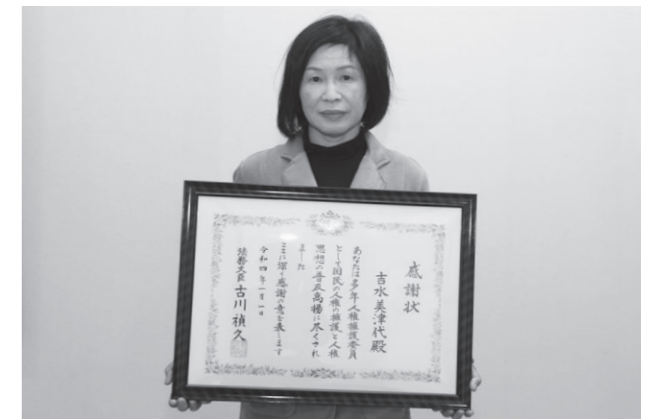 感謝状
吉水美津代殿
あなたは多年人権擁護委員
として国民の人権の擁護と人権
思想の普及高揚に尽くされ
ました
ここに深く感謝の意を表します
令和四年一月一日
法務大臣 古川禎久